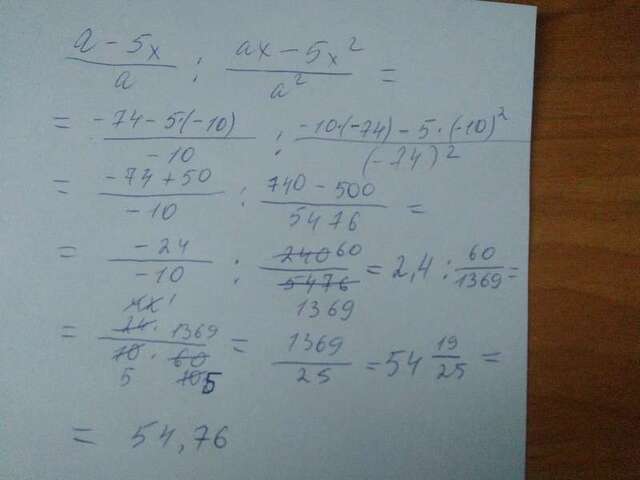 a - 5x / a : ax - 5x² / a² =
= -74 - 5·(-10) / -10 : -10·(-74) - 5·(-10)² / (-74)²
= -74 + 50 / -10 : 740 - 500 / 5476 =
= -24 / -10 : 240 60 / 5476 1369 = 2,4 : 60 / 1369 =
= 24 · 1369 / 10 5 · 60 5 = 1369 / 25 = 54 19/25 =
= 54,76